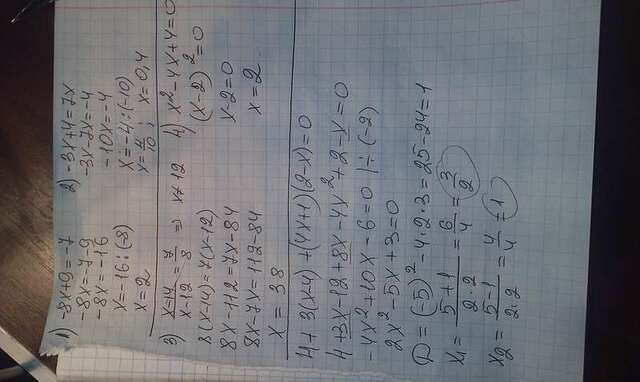 1) -8x+9=-7
-8x=-7-9
-8x=-16
x=-16:(-8)
x=2
2) -3x+4=7x
-3x-7x=-4
-10x=-4
x=-4:(-10)
x=4/10; x=0,4
3) x-14/x-12=7/8 => x≠12
8(x-14)=7(x-12)
8x-112=7x-84
8x-7x=112-84
x=38
4) x²-4x+4=0
(x-2)²=0
x-2=0
x=2
4+3(x-4)+(4x+1)(2-x)=0
4+3x-12+8x-4x²+2-x=0
-4x²+10x-6=0 |÷(-2)
2x²-5x+3=0
D=(-5)²-4·2·3=25-24=1
x₁=5+1/2·2=6/4=3/2
x₂=5-1/2·2=4/4=1